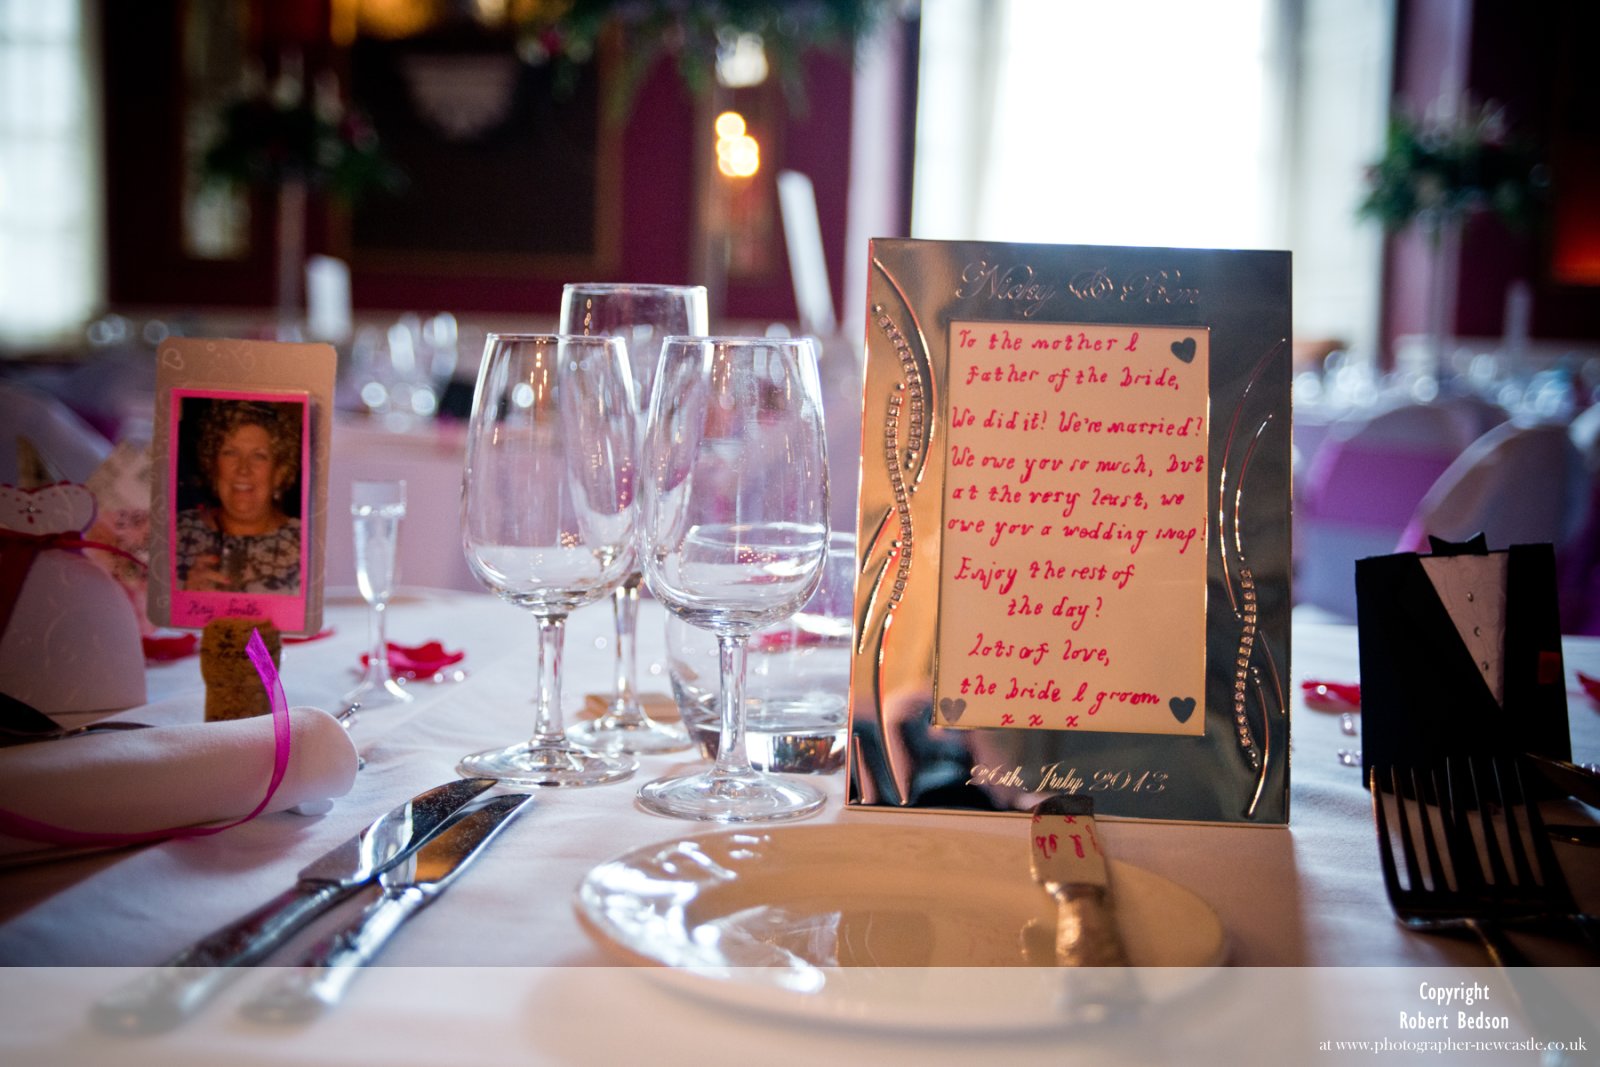 Nicky & Ben
To the mother &
father of the bride,
We did it! We're married!
We owe you so much, but
at the very least, we
owe you a wedding snap!
Enjoy the rest of
the day!
Lots of love,
the bride & groom
x x x
26th July 2013
Kay Smith
Copyright
Robert Bedson
at www.photographer-newcastle.co.uk